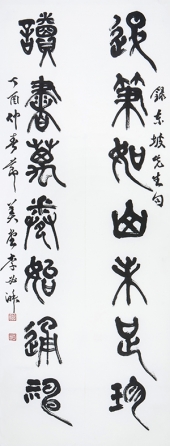 退筆如山未足珍
錄東坡先生句
讀書萬卷始通神
丁酉仲春節 美堂李